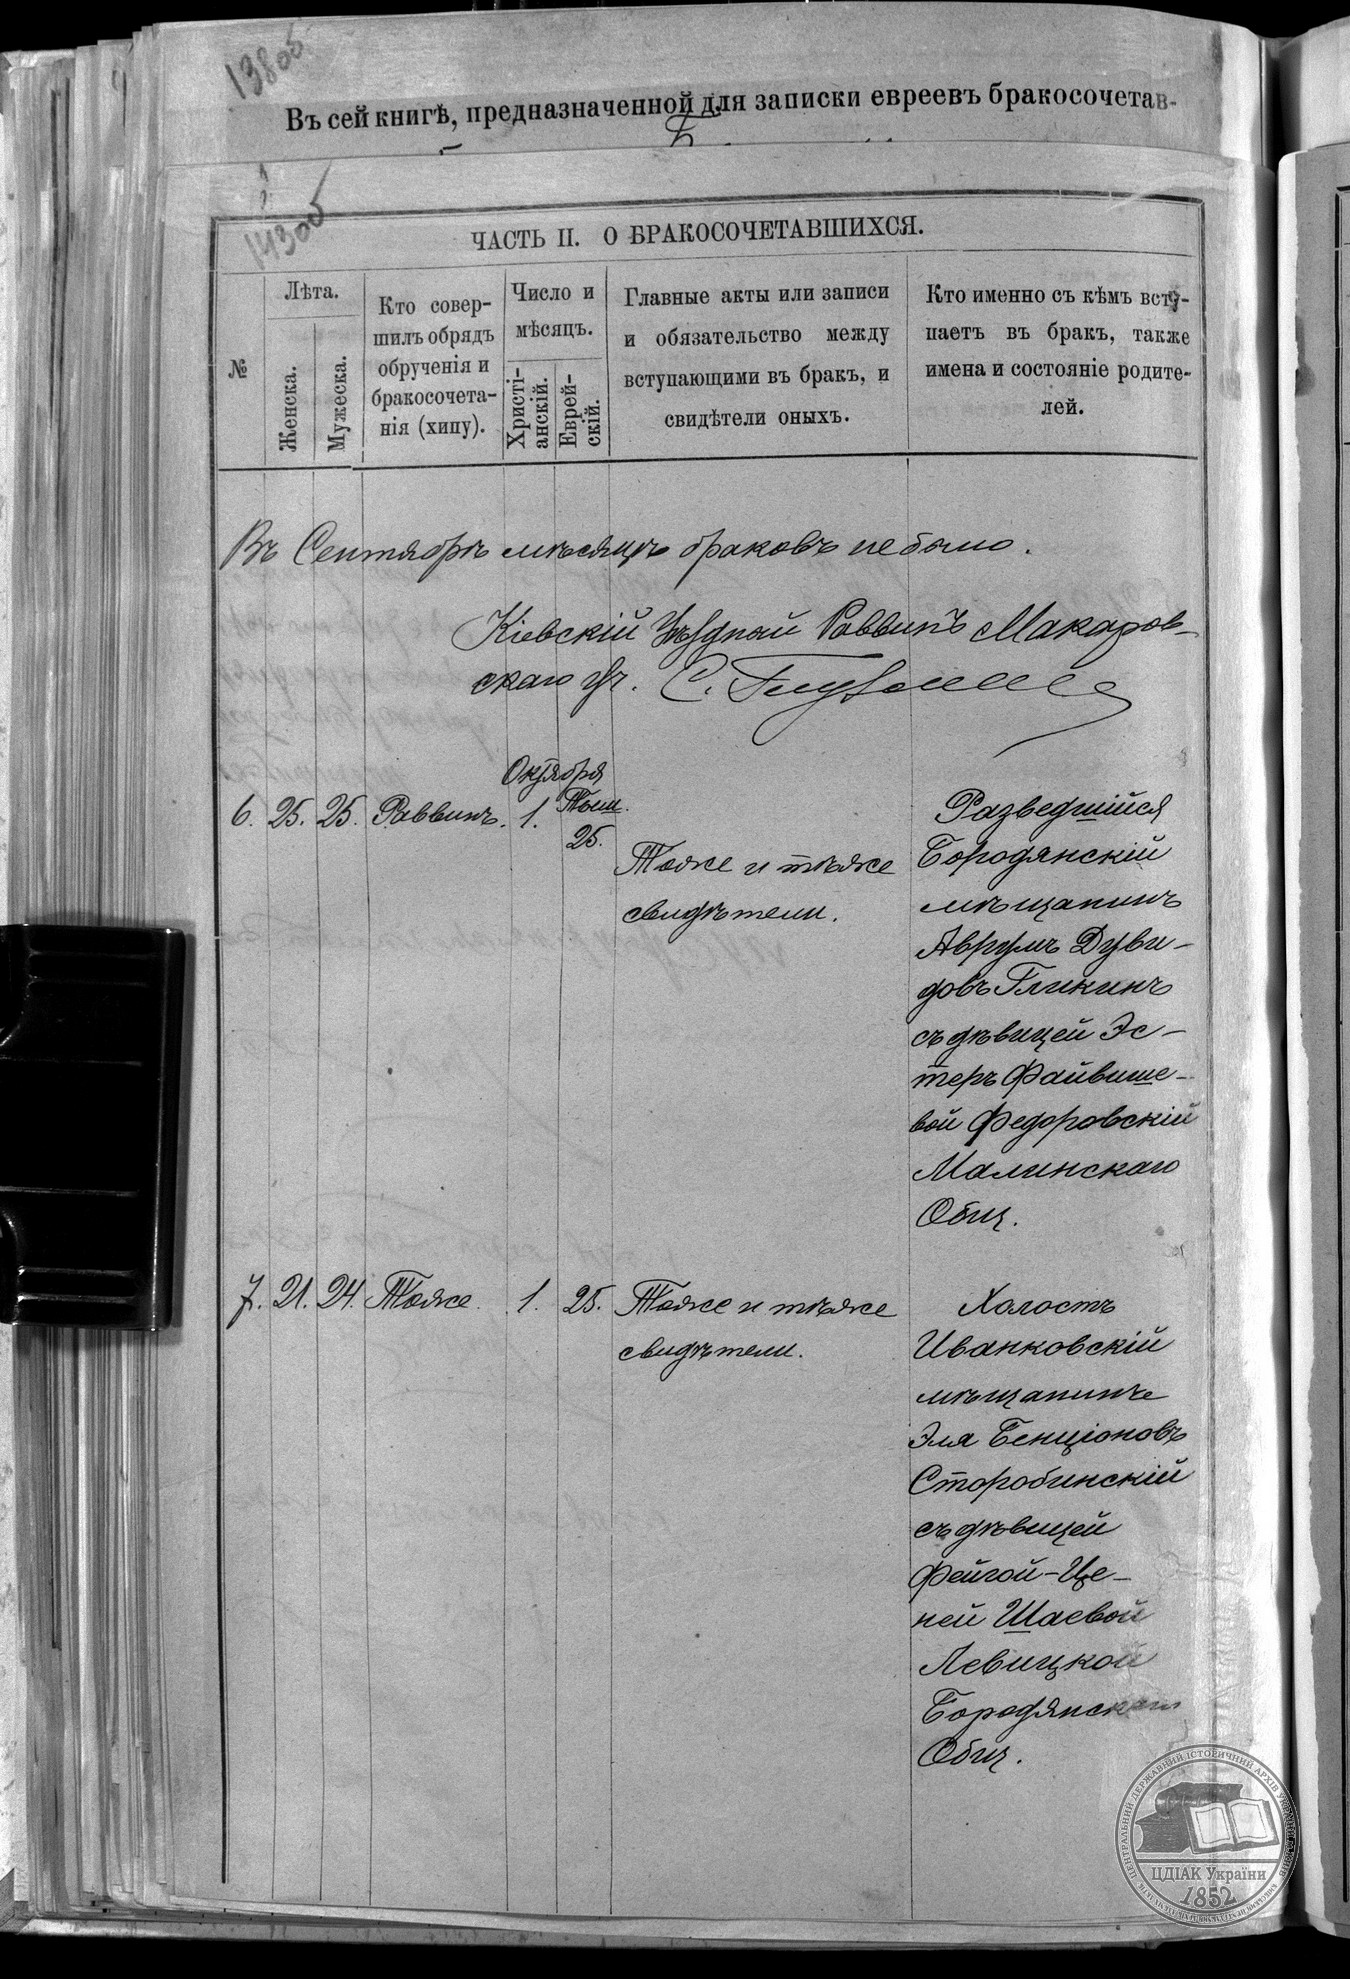 138об
Въ сей книгѣ, предназначенной для записки евреевъ бракосочетав-
143об
ЧАСТЬ II. О БРАКОСОЧЕТАВШИХСЯ.
№
Лѣта.
Женска.
Мужеска.
Кто совер-
шилъ обрядъ
обрученія и
бракосочета-
нія (хипу).
Число и
мѣсяцъ.
Христі-
анскій.
Еврей-
скій.
Главные акты или записи
и обязательство между
вступающими въ бракъ, и
свидѣтели оныхъ.
Кто именно съ кѣмъ всту-
паетъ въ бракъ, также
имена и состояніе родите-
лей.
Въ Сентябрѣ мѣсяцѣ браковъ не было.
Кіевскій Уѣздный Раввинъ Макаров-
скаго уч. С.
Октября
6. 25. 25. Раввинъ. 1. Тыш.
25.
Тоже и тѣже
свидѣтели.
Разведшійся
Бородянскій
мѣщанинъ
Аврумъ Дуви-
довъ Гликинъ
съ дѣвицей Эс-
теръ Файвише-
вой Федоровскій
Малинскаго
Общ.
7. 21. 24. Тоже. 1. 25. Тоже и тѣже
свидѣтели.
Холостъ
Иванковскій
мѣщанинъ
Эля Бенціоновъ
Старобинскій
съ дѣвицей
Фейгой-Це-
ней Шаевой
Левицкой
Бородянскаго
Общ.
ЦЕНТРАЛЬНИЙ ДЕРЖАВНИЙ ІСТОРИЧНИЙ АРХІВ УКРАЇНИ, М. КИЇВ
ЦДІАК України
1852